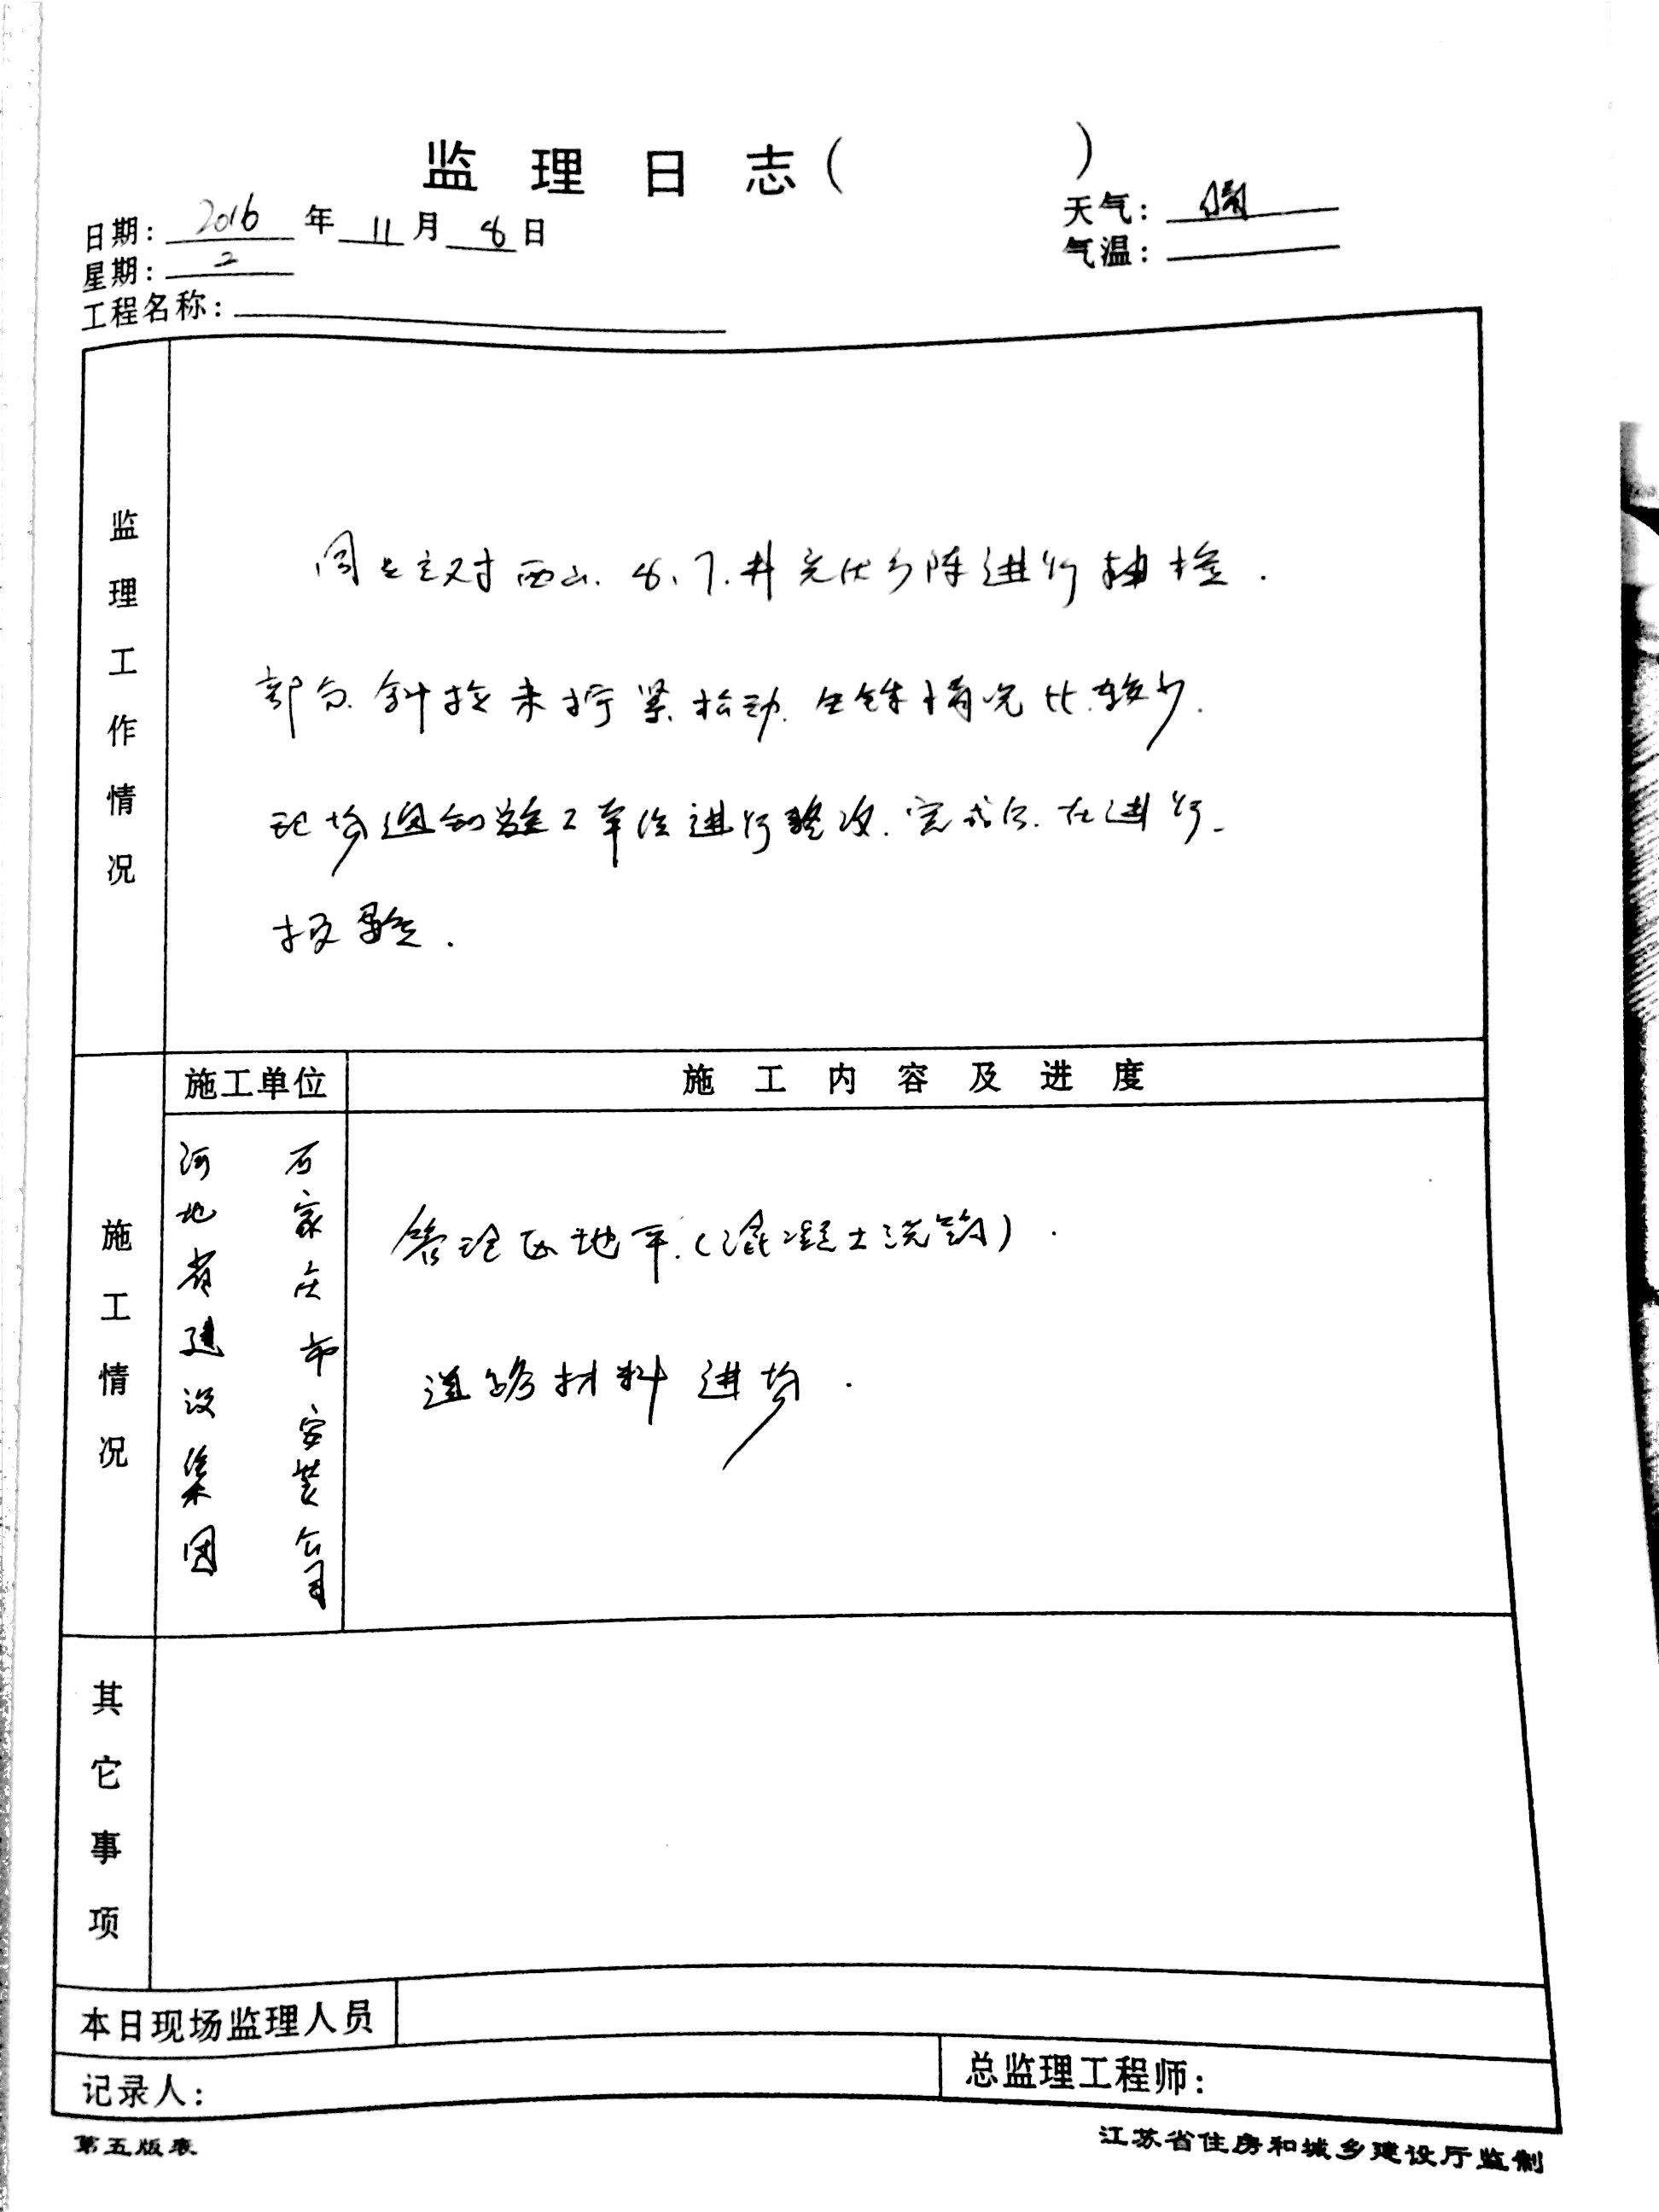 监理日志( )
日期: 2016 年 11 月 8 日
天气: 晴
星期: 2
气温:
工程名称:
监理工作情况
同业主对西山.8、7.井光伏方阵进行抽检.
部分.斜拉未拧紧.松动.生锈情况比较少.
现场通知施工单位进行整改.完成后.在进行
报验.
施工单位
施工内容及进度
施工情况
河北省建设集团
石家庄市安装公司
管理区地平.(混凝土浇筑).
道路材料进场.
其它事项
本日现场监理人员
记录人:
总监理工程师:
第五版表
江苏省住房和城乡建设厅监制